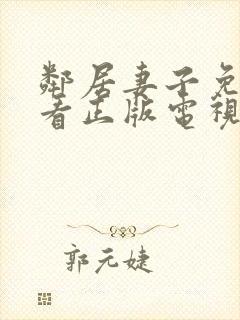 鄰居妻子免
看正版電視
郭元婕